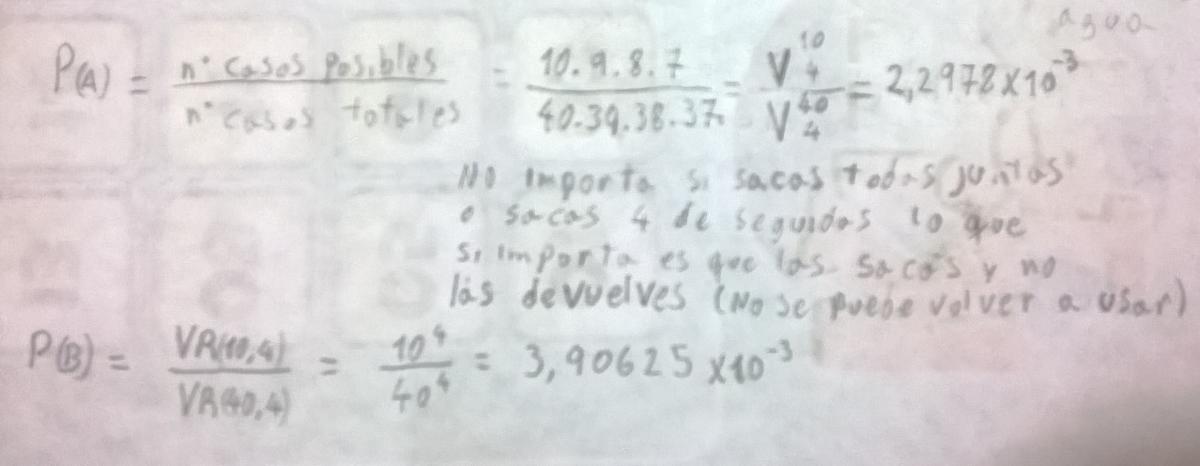 agua
P(A) = n° casos posibles / n° casos totales = 10.9.8.7 / 40.39.38.37 = V₄¹⁰ / V₄⁴⁰ = 2,2978×10⁻³
No importa si sacas todas juntas
o sacas 4 de seguidas lo que
si importa es que las sacas y no
las devuelves (No se puede volver a usar)
P(B) = VR(10,4) / VR(40,4) = 10⁴ / 40⁴ = 3,90625 ×10⁻³